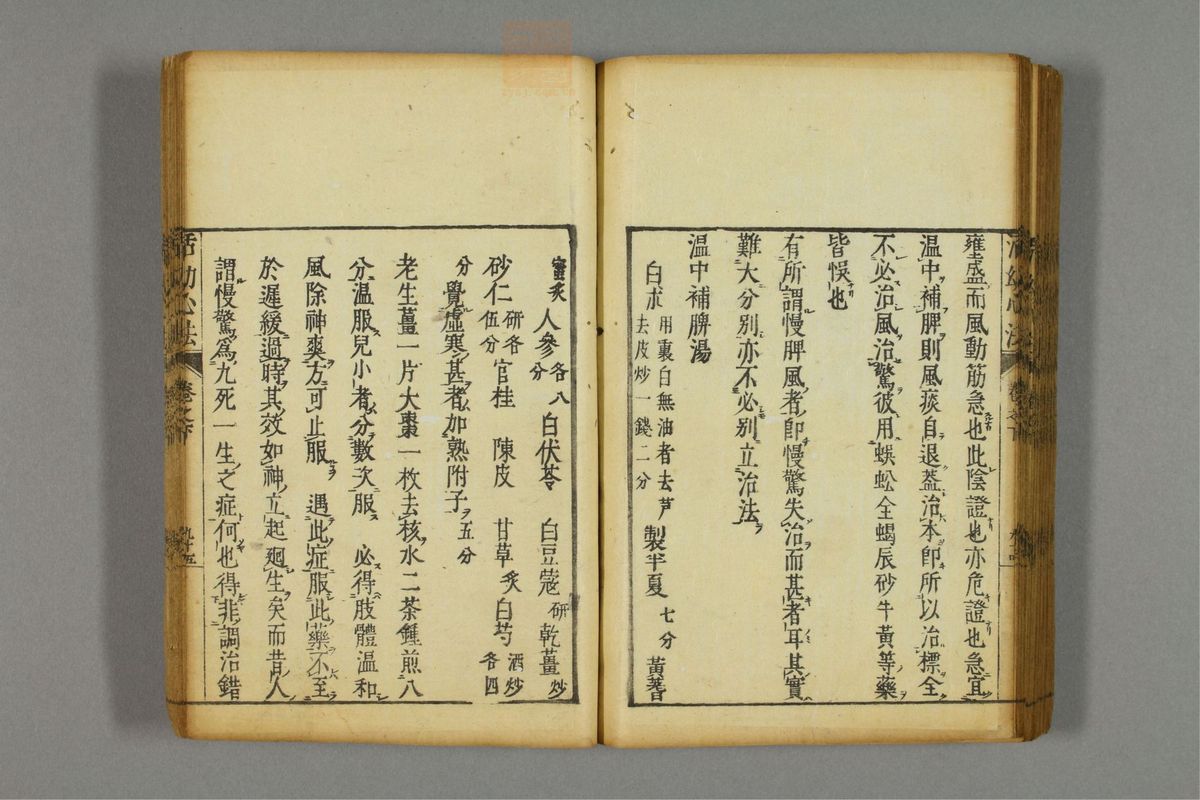 雍盛而風動筋急也此陰證也亦危證也急宜
温中補脾則風痰自退葢治本卽所以治標全
不必治風治驚彼用蜈蚣全蝎辰砂牛黃等藥
皆悞也
有所謂慢脾風者卽慢驚失治而甚者耳其實
難大分別亦不必別立治法
温中補脾湯
白朮 用裏白無油者去芦去皮炒一錢二分 製半夏 七分 黃蓍
蜜炙 人參 各八分 白伏苓 白豆蔻 研 乾薑 炒
砂仁 研各伍分 官桂 陳皮 甘草 炙 白芍 酒炒各四
分 覺虛寒甚者加熟附子五分
老生薑一片大棗一枚去核水二茶鍾煎八
分温服兒小者分數次服 必得肢體温和
風除神爽方可止服 遇此症服此藥不至
於遲緩過時其效如神立起廻生矣而昔人
謂慢驚爲九死一生之症何也得非調治錯
活幼心法 卷之下